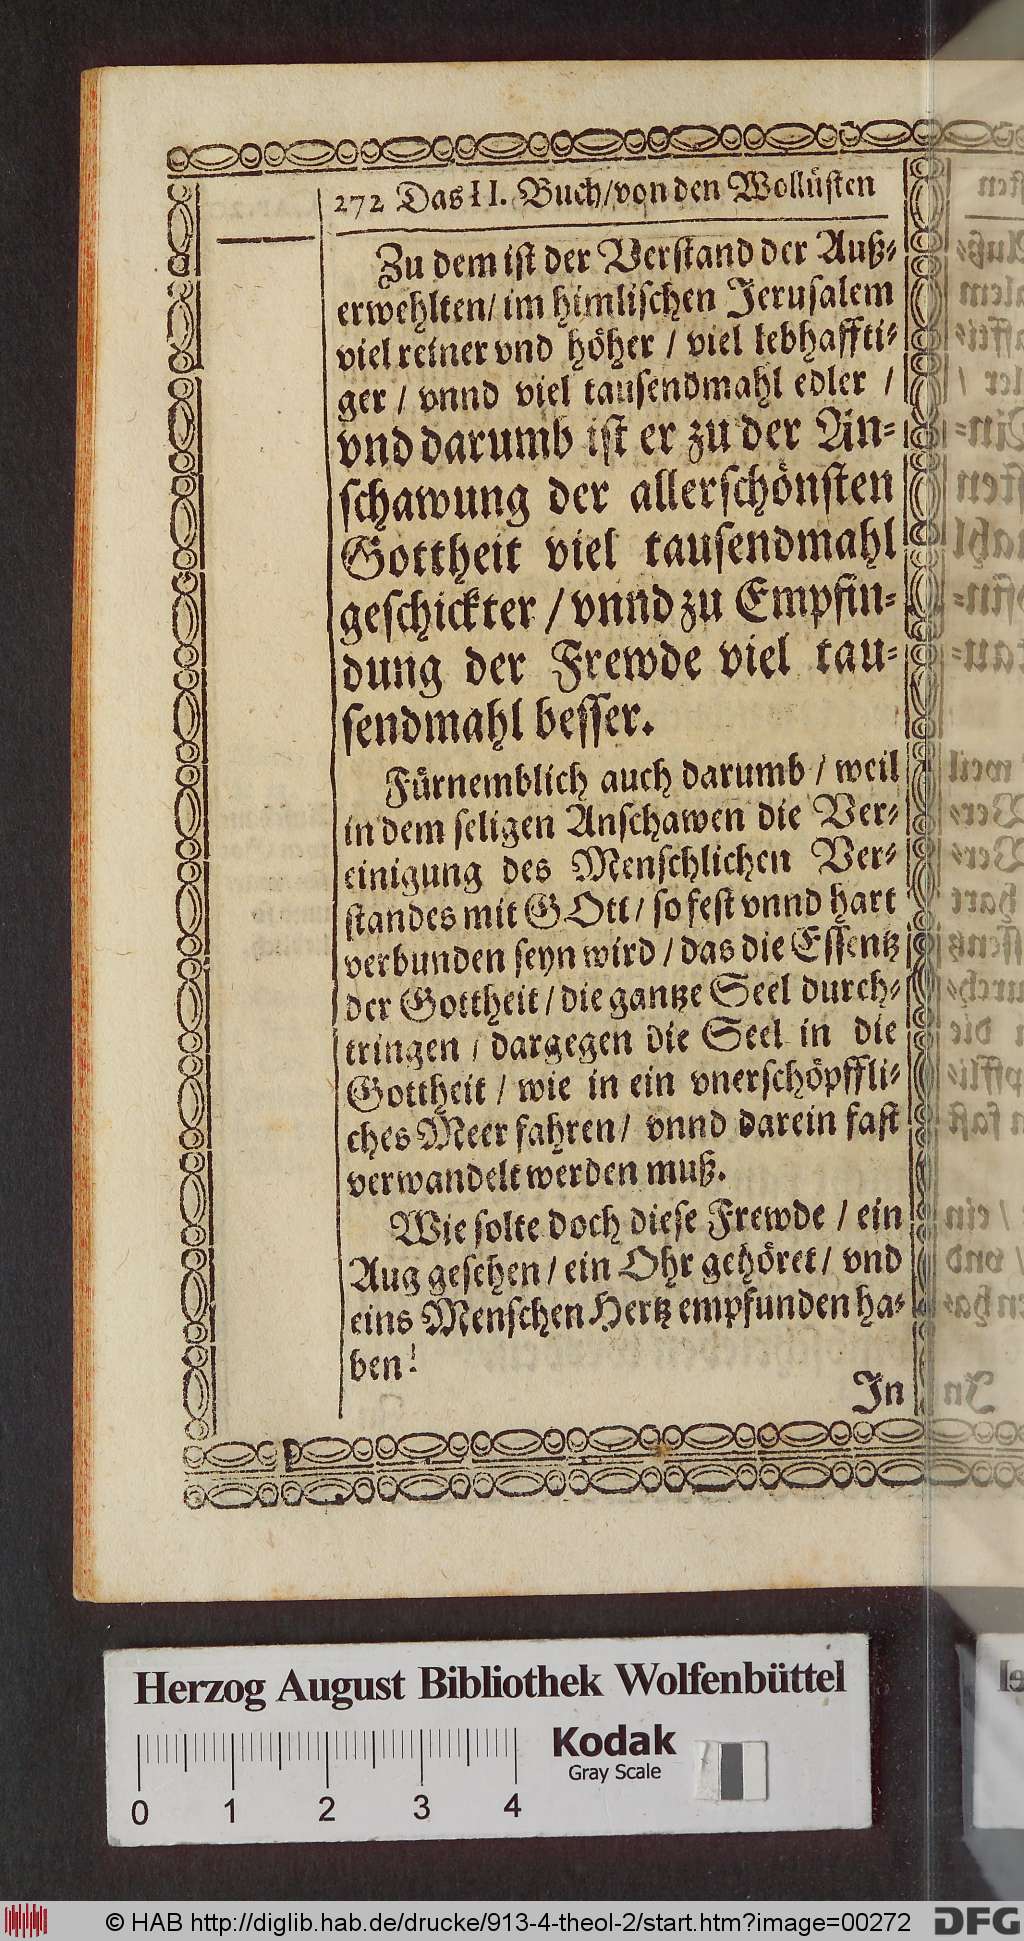 272 Das II. Buch/von den Wollüsten
Zu dem ist der Verstand der Auß-
erwehlten/ im himlischen Jerusalem
viel reiner vnd höher / viel lebhaffti-
ger / vnnd viel tausendmahl edler /
vnd darumb ist er zu der An-
schawung der allerschönsten
Gottheit viel tausendmahl
geschickter / vnnd zu Empfin-
dung der Frewde viel tau-
sendmahl besser.
Fürnemblich auch darumb / weil
in dem seligen Anschawen die Ver-
einigung des Menschlichen Ver-
standes mit GOtt / so fest vnnd hart
verbunden seyn wird / das die Essentz
der Gottheit / die gantze Seel durch-
tringen / dargegen die Seel in die
Gottheit / wie in ein vnerschöpffli-
ches Meer fahren / vnnd darein fast
verwandelt werden muß.
Wie solte doch diese Frewde / ein
Aug gesehen / ein Ohr gehöret / vnd
eins Menschen Hertz empfunden ha-
ben!
In
Herzog August Bibliothek Wolfenbüttel
Kodak
Gray Scale
0 1 2 3 4
© HAB http://diglib.hab.de/drucke/913-4-theol-2/start.htm?image=00272
DFG